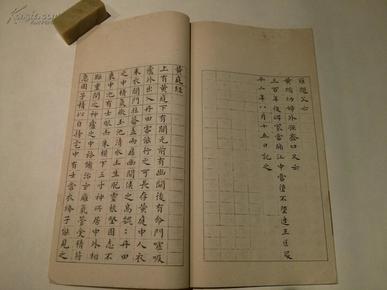 黄庭经
上有黄庭下有關元前有幽闕後有命門噓吸
廬外出入丹田審能行之可長存黄庭中人衣
朱衣關門壯籥蓋兩扉幽闕俠之高巍巍丹田
之中精氣微玉池清水上生肥靈根堅固志不
衰中池有士服赤朱橫下三寸神所居中外相
距重閉之神廬之中務修治玄廱氣管受精符
急固子精以自持宅中有士常衣絳子能見之
黄絹幼婦外孫齏臼又云
三百年後
江中當墮不墮逢王
八月十五日記之